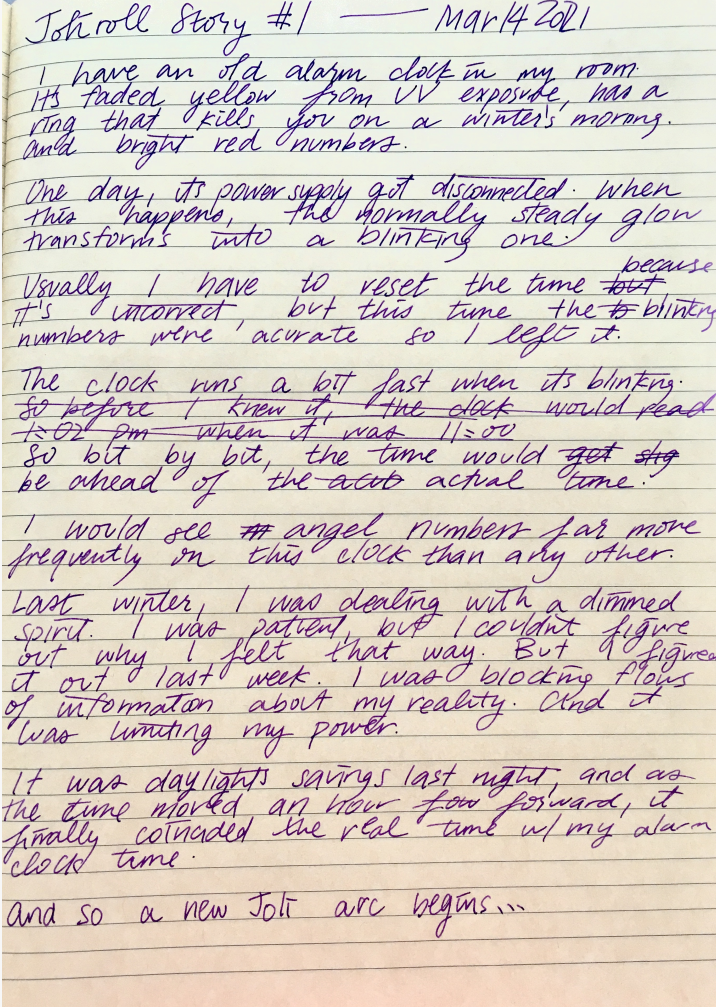 Joti roll Story #1 — Mar 14 2021
I have an old alarm clock in my room.
It's faded yellow from UV exposure, has a
ring that kills you on a winter's morong.
and bright red numbers.
One day, its power supply got disconnected. When
this happens, the normally steady glow
transforms into a blinking one.
because
Usually I have to reset the time but
it's incorrect, but this time the b blinking
numbers were acurate so I left it.
The clock runs a bit fast when its blinking.
So before I knew it, the clock would read
1:02 pm when it was 11:00
So bit by bit, the time would get
be ahead of the actual time.
I would see angel numbers far more
frequently on this clock than any other.
Last winter, I was dealing with a dimmed
spirit. I was patient, but I couldn't figure
out why I felt that way. But I figured
it out last week. I was blocking flows
of information about my reality. And it
was limiting my power.
It was daylights savings last night, and as
the time moved an hour fow forward, it
finally coincided the real time w/ my alarm
clock time.
And so a new Joti arc begins...